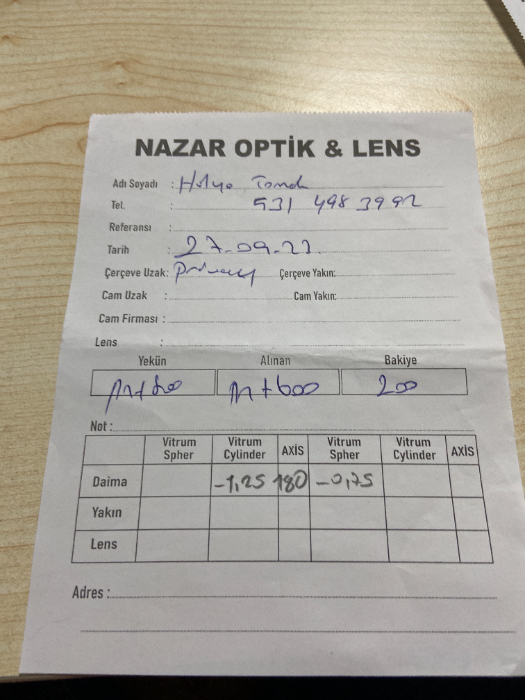 NAZAR OPTİK & LENS
Adı Soyadı :
Tel. : 531 498 3992
Referansı :
Tarih : 27.09.23
Çerçeve Uzak: Çerçeve Yakın:
Cam Uzak : Cam Yakın:
Cam Firması :
Lens :
Yekün Alınan Bakiye
M+800 M+600 200
Not :
Vitrum Spher Vitrum Cylinder AXİS Vitrum Spher Vitrum Cylinder AXİS
Daima -1,25 180 -0,75
Yakın
Lens
Adres :